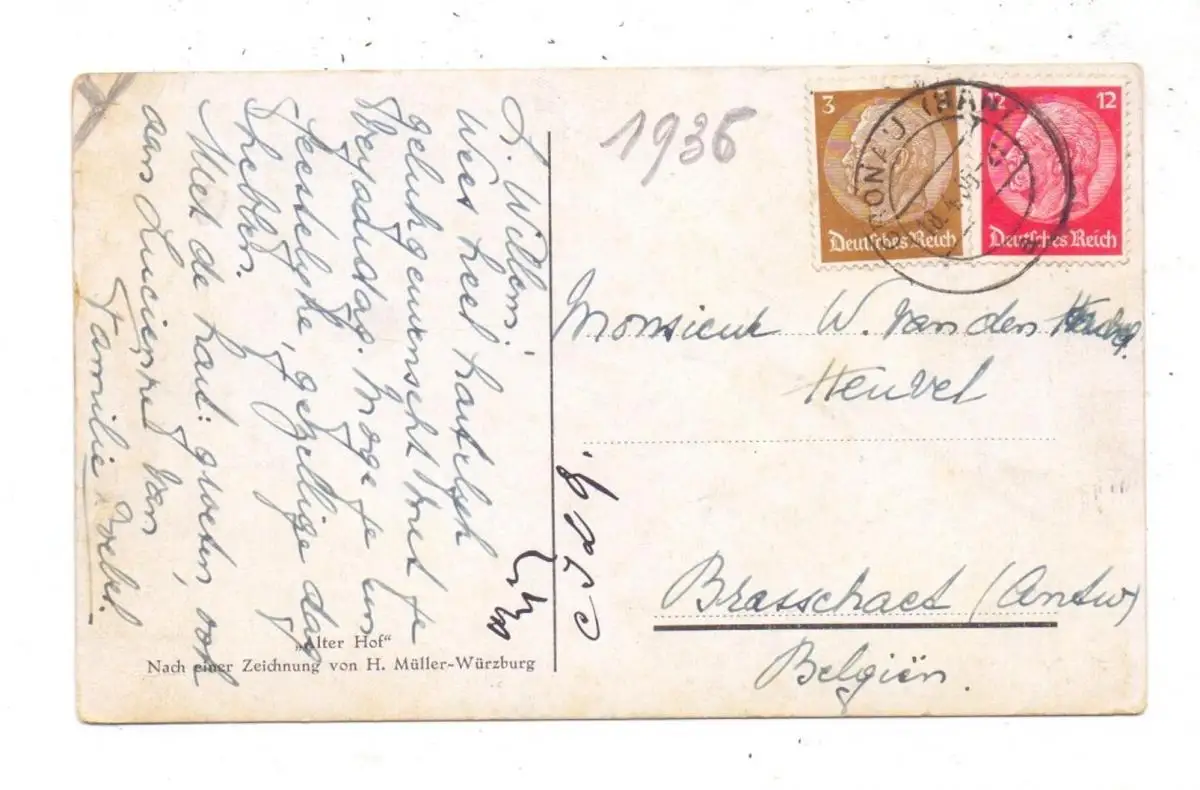 L. Willem,
Wees heel hartelijk
gelukgewenscht met je
Verjaardag. Moge je een
feestelyke, gezellige dag
hebben.
Met de hart: groeten, ook
aan Lucienne van
Familie
1936
3
Deutsches Reich
12 12
Deutsches Reich
GRONAU (HAN)
Monsieur W. van den
Heuvel
Brasschaet (Antw)
Belgiën.
„Alter Hof“
Nach einer Zeichnung von H. Müller-Würzburg